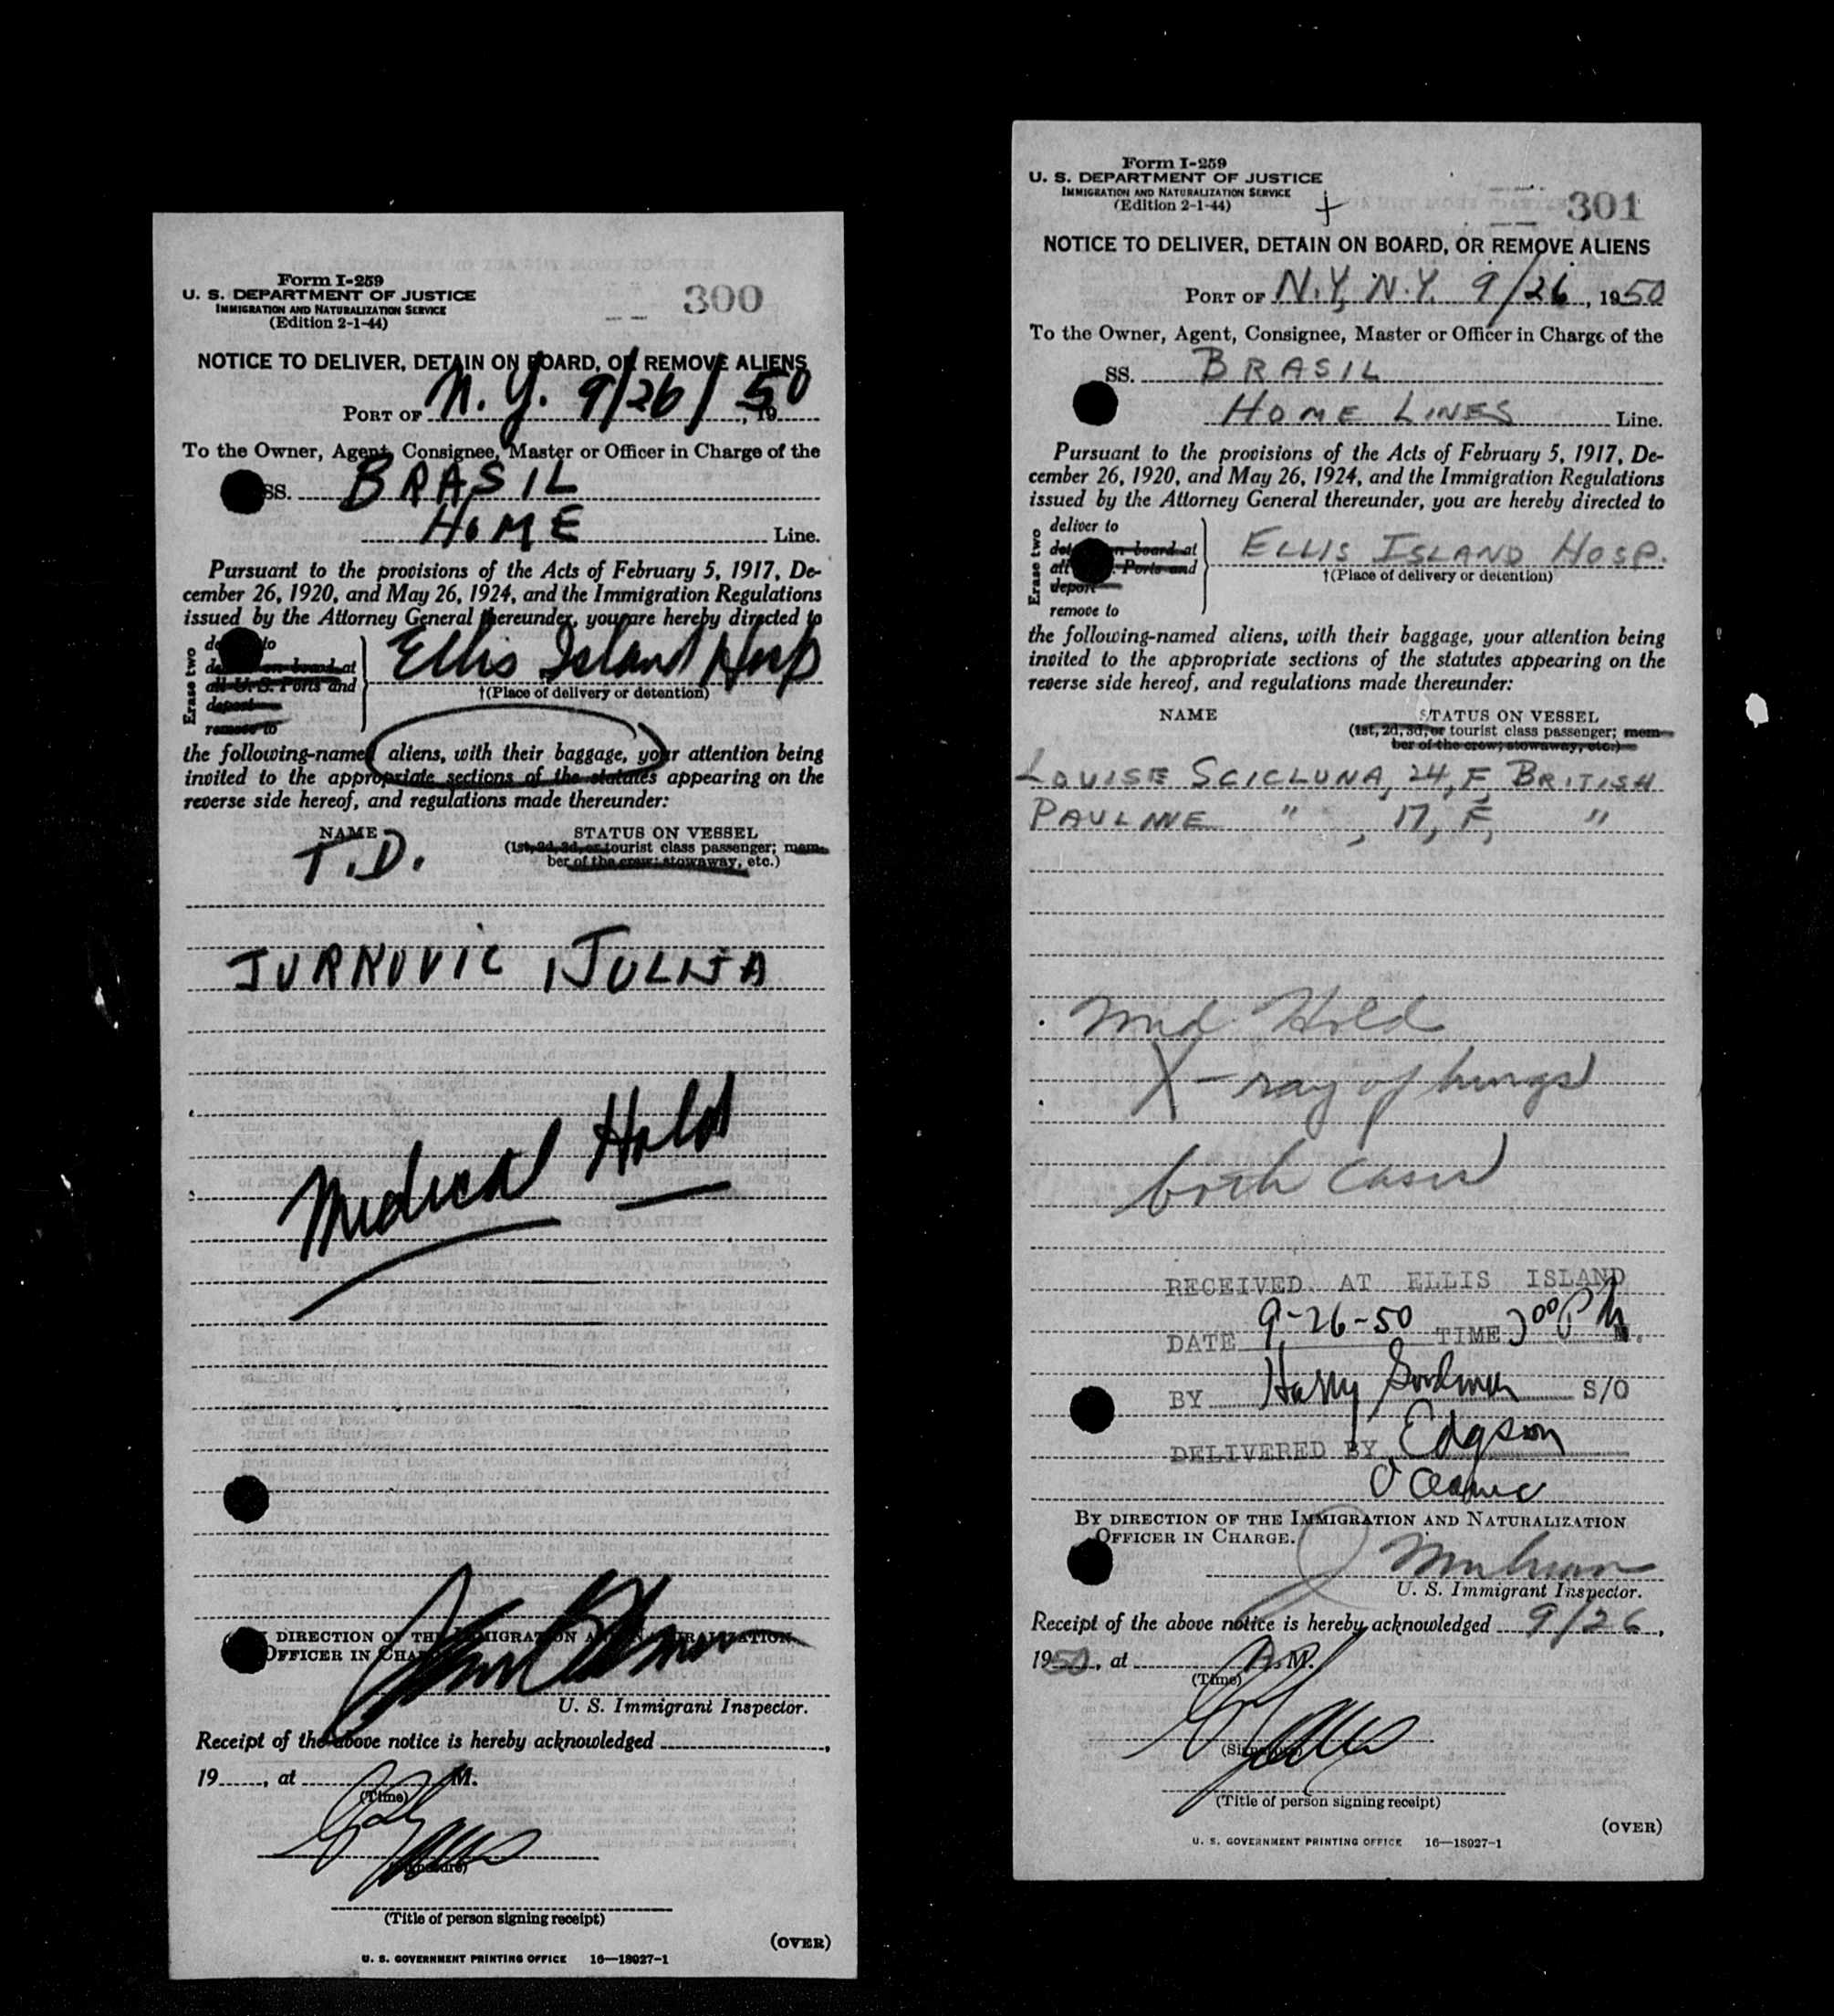 Form I-259
U. S. DEPARTMENT OF JUSTICE
IMMIGRATION AND NATURALIZATION SERVICE
(Edition 2-1-44)
300
NOTICE TO DELIVER, DETAIN ON BOARD, OR REMOVE ALIENS
PORT OF N. Y. 9/26/ 1950
To the Owner, Agent, Consignee, Master or Officer in Charge of the
SS. BRASIL
HOME Line.
Pursuant to the provisions of the Acts of February 5, 1917, De-
cember 26, 1920, and May 26, 1924, and the Immigration Regulations
issued by the Attorney General thereunder, you are hereby directed to
Erase two
to
on board at
all U. S. Ports and
depart
remove to
Ellis Island Hosp
†(Place of delivery or detention)
the following-named aliens, with their baggage, your attention being
invited to the appropriate sections of the statutes appearing on the
reverse side hereof, and regulations made thereunder:
NAME STATUS ON VESSEL
(1st, 2d, 3d, or tourist class passenger; mem-
ber of the crew; stowaway, etc.)
T.D.
JURNOVIC, JULIJA
Medical Hold
BY DIRECTION OF THE IMMIGRATION AND NATURALIZATION
OFFICER IN CHARGE.
U. S. Immigrant Inspector.
Receipt of the above notice is hereby acknowledged
19 , at M.
(Time)
(Signature)
(Title of person signing receipt)
(OVER)
U. S. GOVERNMENT PRINTING OFFICE 16—18927-1
Form I-259
U. S. DEPARTMENT OF JUSTICE
IMMIGRATION AND NATURALIZATION SERVICE
(Edition 2-1-44)
301
NOTICE TO DELIVER, DETAIN ON BOARD, OR REMOVE ALIENS
PORT OF N.Y, N.Y. 9/26, 1950
To the Owner, Agent, Consignee, Master or Officer in Charge of the
SS. BRASIL
HOME LINES Line.
Pursuant to the provisions of the Acts of February 5, 1917, De-
cember 26, 1920, and May 26, 1924, and the Immigration Regulations
issued by the Attorney General thereunder, you are hereby directed to
Erase two
deliver to
on board at
all Ports and
deport
remove to
ELLIS ISLAND HOSP.
†(Place of delivery or detention)
the following-named aliens, with their baggage, your attention being
invited to the appropriate sections of the statutes appearing on the
reverse side hereof, and regulations made thereunder:
NAME STATUS ON VESSEL
(1st, 2d, 3d, or tourist class passenger; mem-
ber of the crew; stowaway, etc.)
LOUISE SCICLUNA, 24, F, BRITISH
PAULINE " , 17, F, "
Med. Hold
X-ray of lungs
both cases
RECEIVED AT ELLIS ISLAND
DATE 9-26-50 TIME 300 P M.
BY Harry Goodman S/O
DELIVERED BY Edgson
Oceanic
BY DIRECTION OF THE IMMIGRATION AND NATURALIZATION
OFFICER IN CHARGE.
U. S. Immigrant Inspector.
Receipt of the above notice is hereby acknowledged 9/26,
1950, at A. M.
(Time)
(Signature)
(Title of person signing receipt)
(OVER)
U. S. GOVERNMENT PRINTING OFFICE 16—18927-1